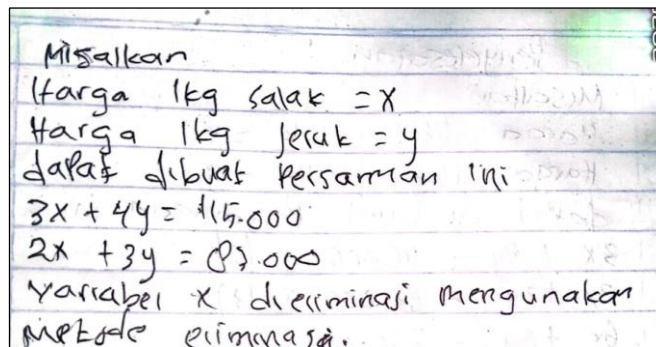 Misalkan
Harga 1kg salak = x
Harga 1kg Jeruk = y
dapat dibuat Persamman ini
3x + 4y = 115.000
2x + 3y = 83.000
Variabel x dieriminasi mengunakan
metode eriminasi.